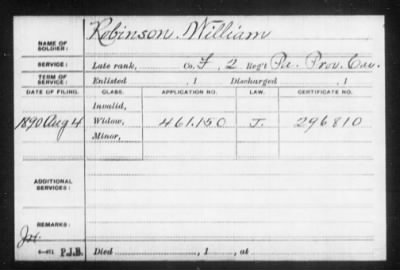 NAME OF SOLDIER: Robinson, William
SERVICE: Late rank, Co. F, 2 Reg't Pa. Prov. Cav.
TERM OF SERVICE: Enlisted , 1 Discharged , 1
DATE OF FILING. CLASS. APPLICATION NO. LAW. CERTIFICATE NO.
Invalid,
1890 Aug 4 Widow, 461.150 J. 296810
Minor,
ADDITIONAL SERVICES:
REMARKS:
P.J.B. Died , 1 , at